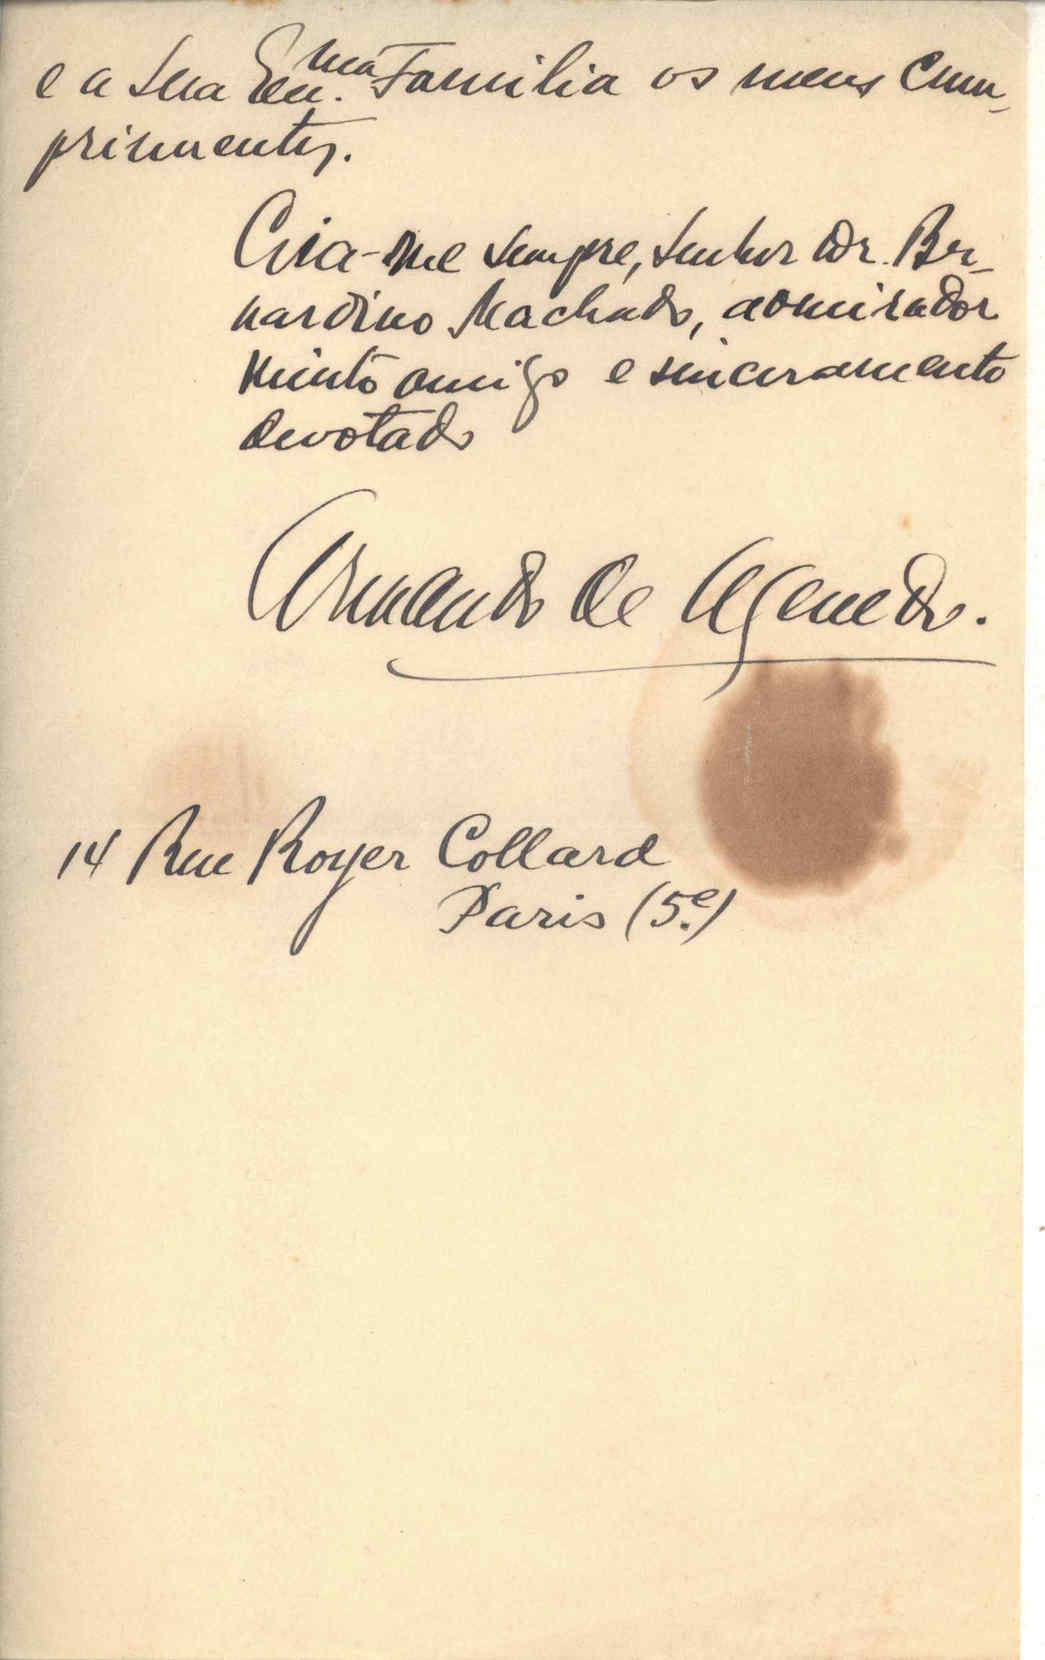 e a sua Ex.ma Familia os meus cum-
primentos.
Crea-me sempre, senhor Dr. Ber-
nardino Machado, admirador
muito amigo e sinceramente
devotado
Armando de Azevedo.
14 Rue Royer Collard
Paris (5e)